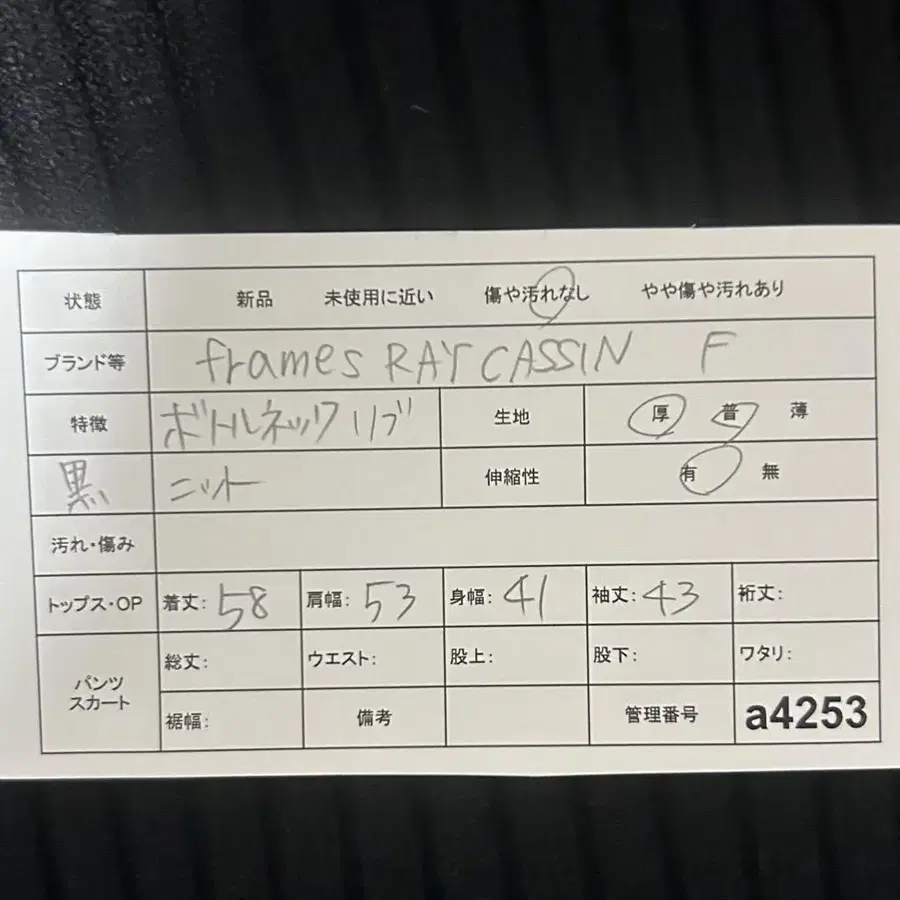 状態 新品 未使用に近い 傷や汚れなし やや傷や汚れあり
ブランド等 frames RAY CASSIN F
特徴 ボトルネック リブ 生地 厚 普 薄
黒 ニット 伸縮性 有 無
汚れ・傷み
トップス・OP 着丈: 58 肩幅: 53 身幅: 41 袖丈: 43 裄丈:
パンツ スカート
総丈: ウエスト: 股上: 股下: ワタリ:
裾幅: 備考 管理番号 a4253